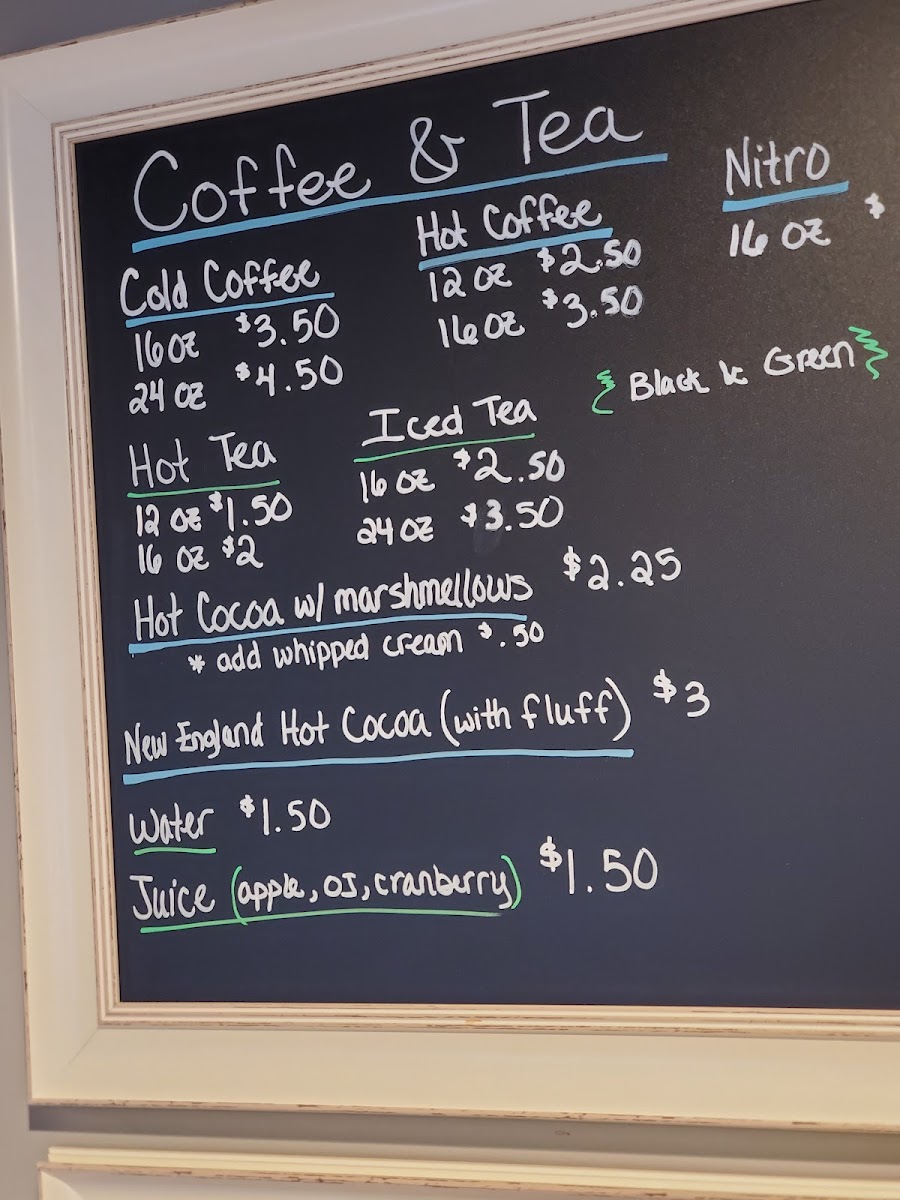 Coffee & Tea
Nitro
16 oz $
Hot Coffee
12 oz $2.50
16 oz $3.50
Cold Coffee
16 oz $3.50
24 oz $4.50
Black & Green
Hot Tea
12 oz $1.50
16 oz $2
Iced Tea
16 oz $2.50
24 oz $3.50
Hot Cocoa w/ marshmellows $2.25
* add whipped cream $.50
New England Hot Cocoa (with fluff) $3
Water $1.50
Juice (apple, OJ, cranberry) $1.50